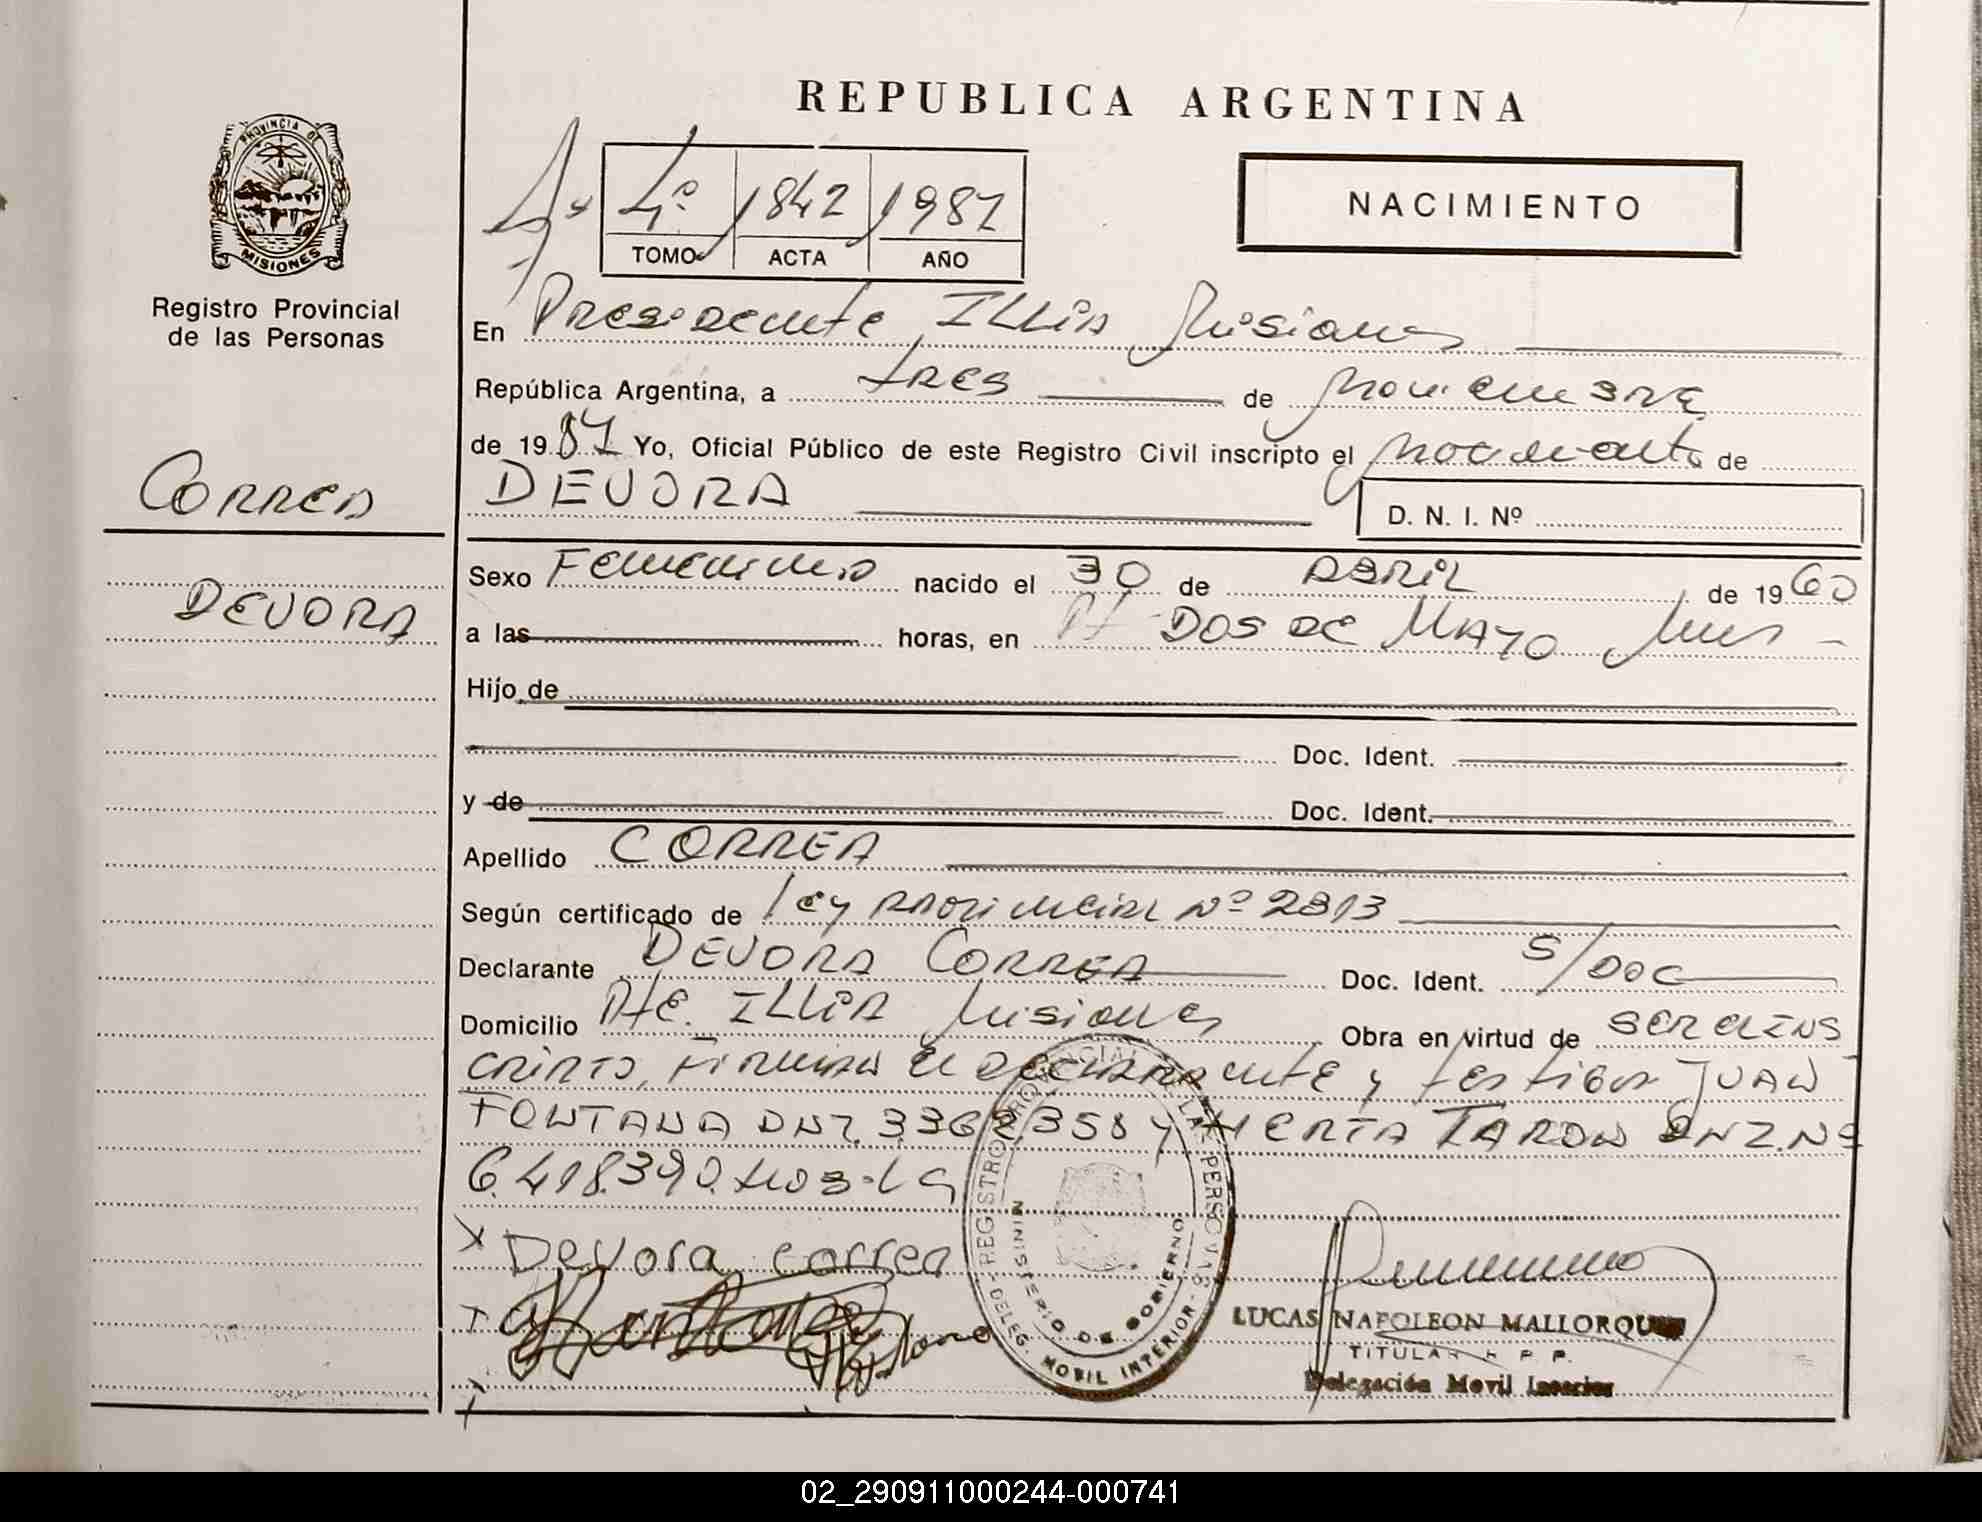 REPUBLICA ARGENTINA
PROVINCIA DE
MISIONES
Registro Provincial
de las Personas
4º 1842 1987
TOMO ACTA AÑO
NACIMIENTO
En Presidente Illia Misiones
República Argentina, a tres de noviembre
de 1987 Yo, Oficial Público de este Registro Civil inscripto el nacimiento de
DEVORA
D. N. I. Nº
CORREA
DEVORA
Sexo Femenino nacido el 30 de ABRIL de 1960
a las horas, en Pf DOS DE MAYO Mnes
Hijo de
Doc. Ident.
y de Doc. Ident.
Apellido CORREA
Según certificado de ley provincial Nº 2313
Declarante DEVORA CORREA Doc. Ident. S/DOC
Domicilio Pte. Illia Misiones Obra en virtud de SER EL INS
CRIPTO, Firman el Declarante y testigos JUAN
FONTANA DNI. 3362358 y HERTA TARON DNI. Nº
6.418.390.
REGISTRO PROVINCIAL DE LAS PERSONAS
MINISTERIO DE GOBIERNO
DELEG. MOBIL INTERIOR
Devora correa
LUCAS NAPOLEON MALLORQUIN
TITULAR R. P. P.
Delegación Movil Interior
02_290911000244-000741